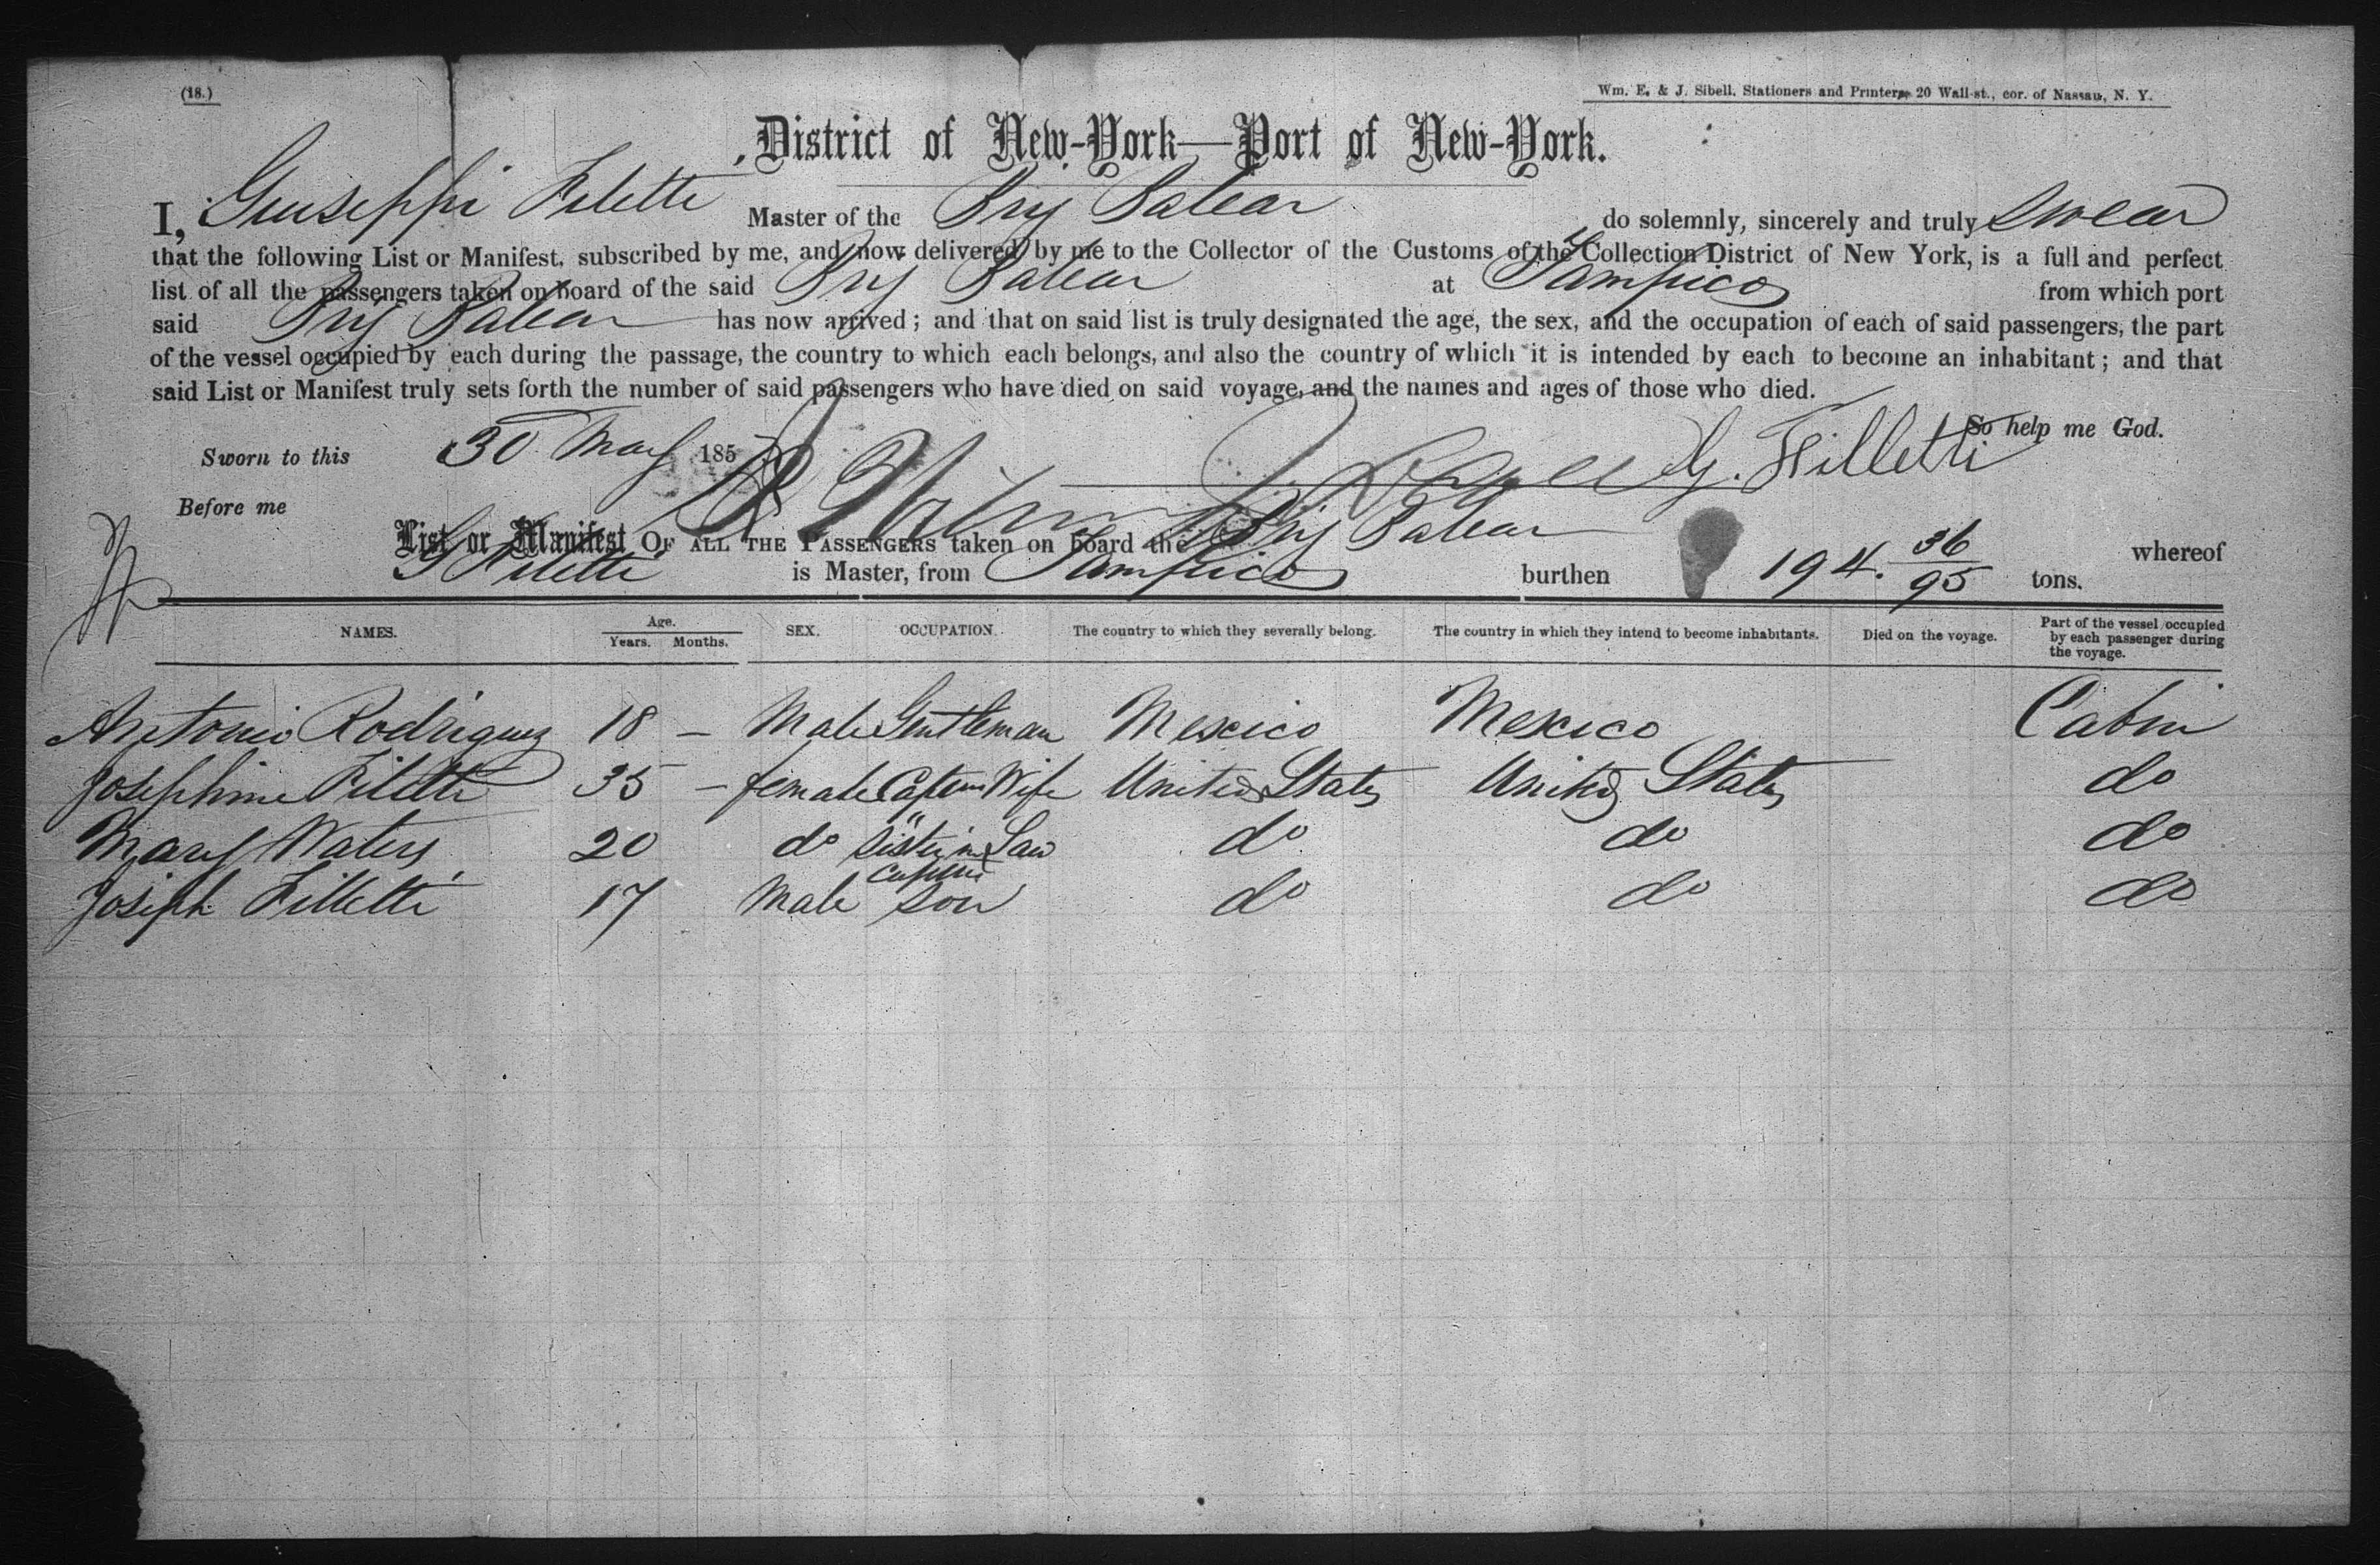 (18.)
Wm. E. & J. Sibell, Stationers and Printers, 20 Wall-st., cor. of Nassau, N. Y.
District of New-York—Port of New-York.
I, Giuseppi Filetti Master of the Brig Balear do solemnly, sincerely and truly swear
that the following List or Manifest, subscribed by me, and now delivered by me to the Collector of the Customs of the Collection District of New York, is a full and perfect
list of all the passengers taken on board of the said Brig Balear at Tampico from which port
said Brig Balear has now arrived; and that on said list is truly designated the age, the sex, and the occupation of each of said passengers, the part
of the vessel occupied by each during the passage, the country to which each belongs, and also the country of which it is intended by each to become an inhabitant; and that
said List or Manifest truly sets forth the number of said passengers who have died on said voyage, and the names and ages of those who died.
So help me God.
Sworn to this 30 May 185
G. Filletti
Before me
List or Manifest OF ALL THE PASSENGERS taken on board the Brig Balear whereof
G Filetti is Master, from Tampico burthen 194. 36/95 tons.
NAMES. Age. Years. Months. SEX. OCCUPATION. The country to which they severally belong. The country in which they intend to become inhabitants. Died on the voyage. Part of the vessel occupied by each passenger during the voyage.
Antonio Rodriguez 18 – Male Gentleman Mexico Mexico Cabin
Josephine Filetti 35 – female Captns Wife United States United States do
Mary Waters 20 do " Sister in Law do do do
Joseph Filletti 17 Male Captns son do do do